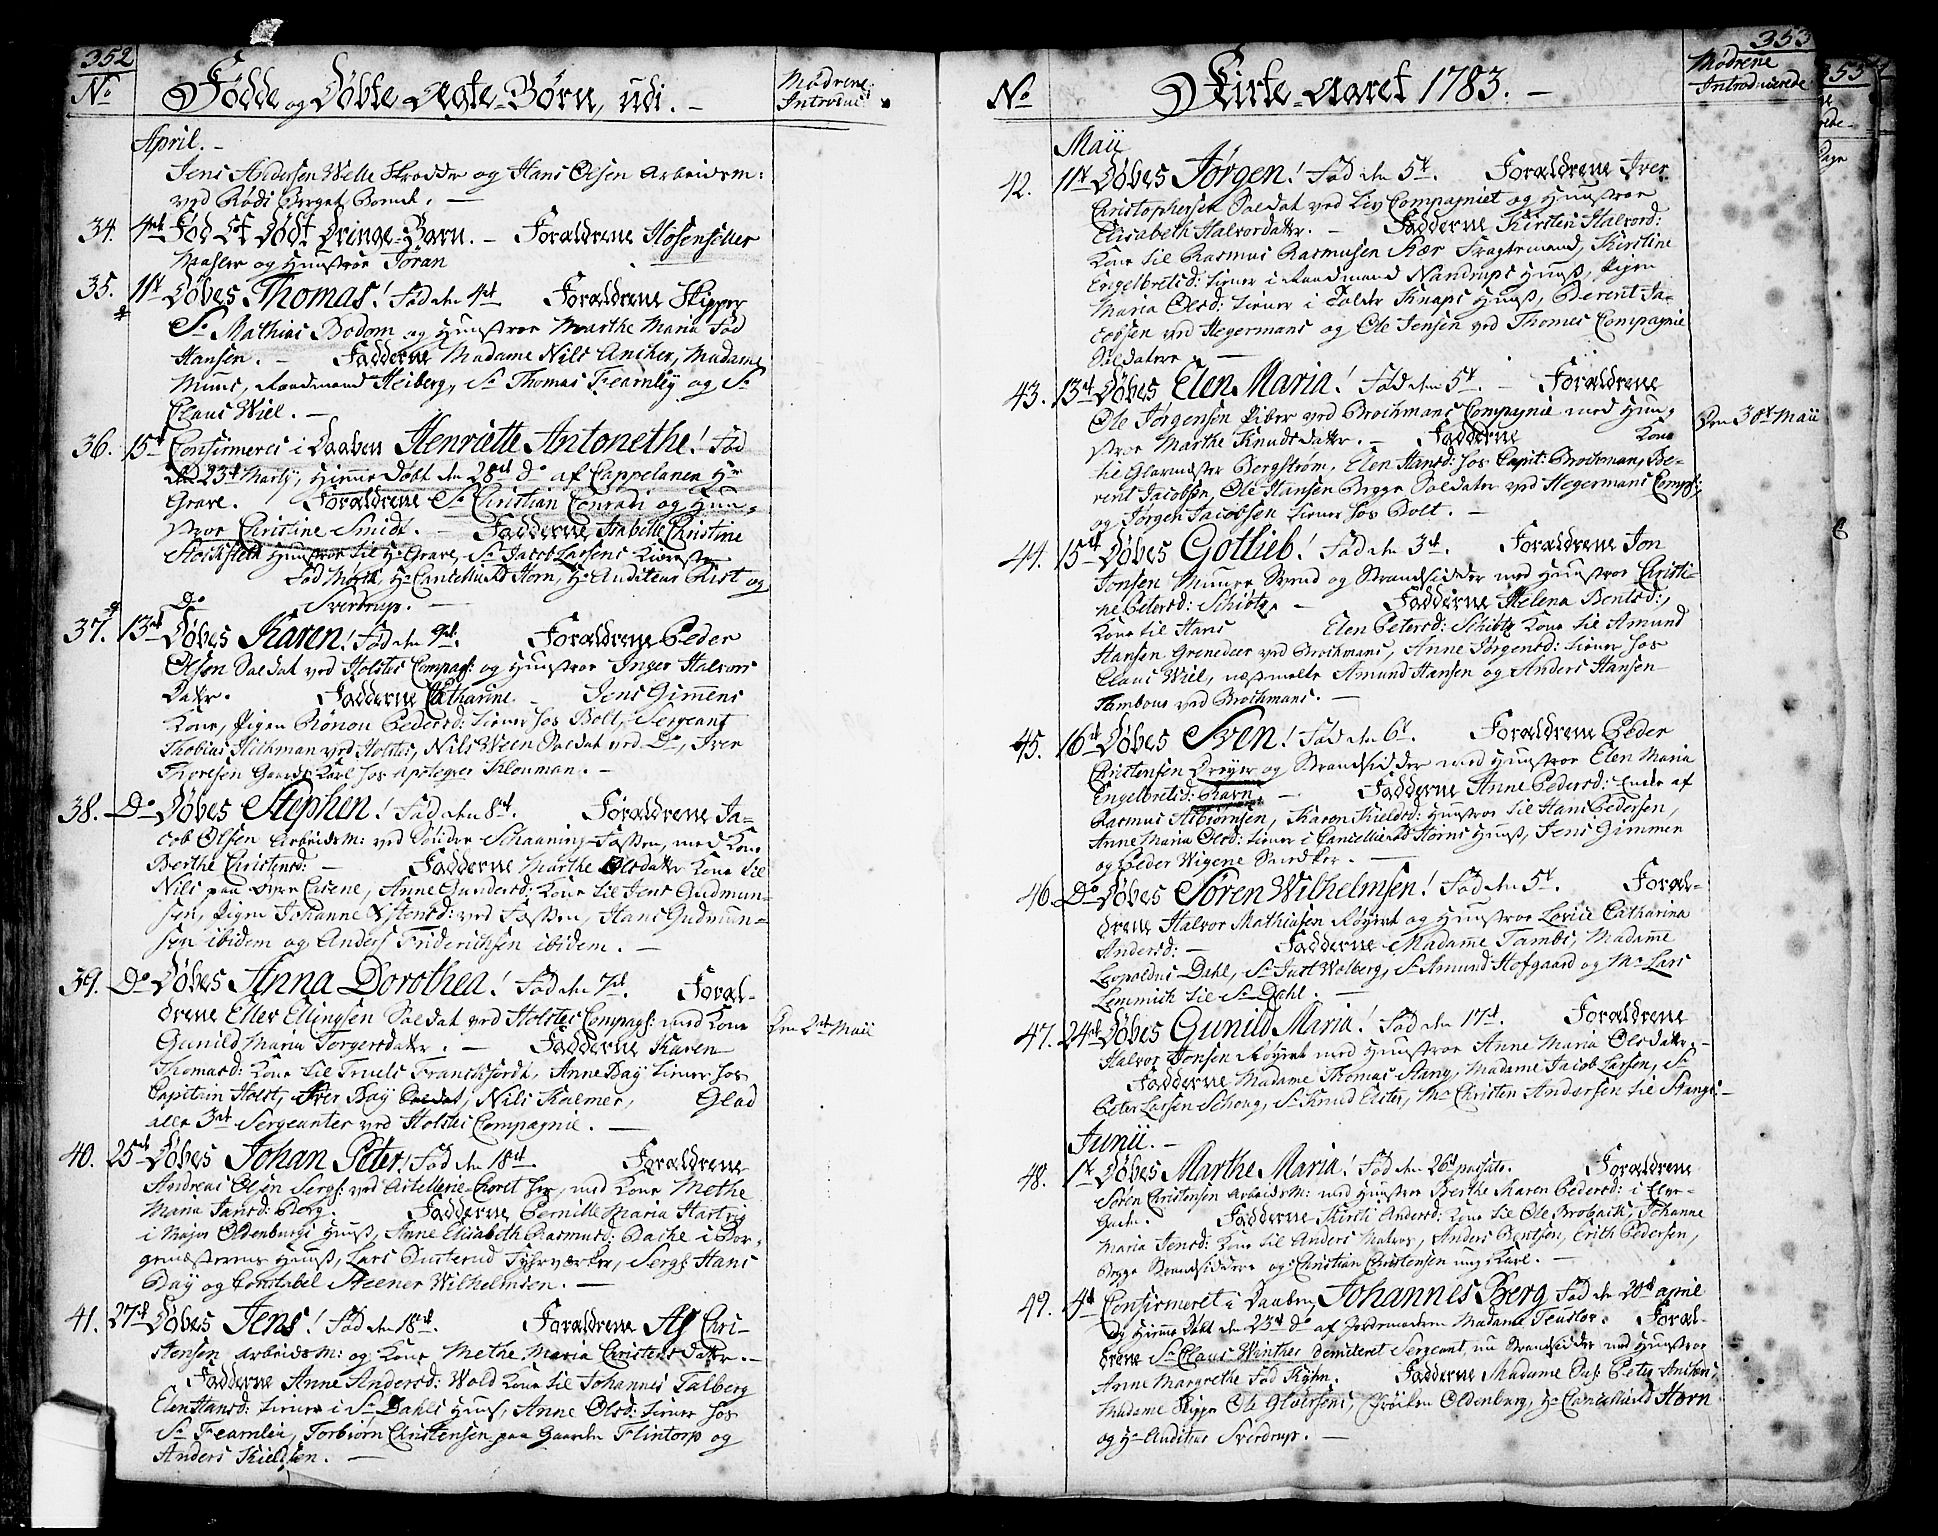 352
No Fødde og Døbte Ægte-Børn, udi. Mødrene Introduc:
April.
Jens Andersen Welle Skrædder og Hans Olsen Arbeidsm:
ved Berget Boende.
34. 4de Fød Et Dødt Drenge-Barn. Forældrene Hosensetter
Mahler og Hunstroe Joran
35. 11te Døbes Thomas! Fød den 4de Forældrene Skipper
Sr Mathias Bodom og Hunstroe Marthe Maria Fød
Hansen. Fadderne Madame Nils Ancher, Madame
Muus, Raadmand Heiberg, Sr Thomas Fearnley og Sr
Claus Wiel.
36. 15de Confirmeret i Daaben Henriette Antonethe! Fød
den 23de Martij, hjemmedøbt den 28de Do af Cappelanen Hr
Grave. Forældrene Sr Christian Conradi og Hun-
stroe Christine Smidt. Fadderne Isabelle Christine
Stockfleth Hunstroe til Hr Grave, Sr Jacob Larsens Kiereste
Fød Mørch, Hr Cancellieraad Horn, Hr Auditeur Rist og
Do Sverdrup.
37. 13de Døbes Karen! Fød den 9de. Forældrene Peder
Olsen Soldat ved Holstes Compags: og Hunstroe Inger Halvors
Datter. Fadderne Catharine Jens Gimmens
Kone, Pigen Rønou Pedersd: tiener hos Bolt, Sergeant
Thobias Hickman ved Holstes, Nils Ween Soldat ved Do, Iver
Thoresen Gaards Karl hos Apotequer Klouman.
38. Do Døbes Stephen! Fød den 8de. Forældrene Ja-
cob Olsen Arbeidsm: ved Søndre Schaaning-Fossen, med Kone
Berthe Christensd: Fadderne Marthe Olsdatter Kone til
Nils paa Øvre Eisene, Anne Gundersd: Kone til Jens Gudmun-
sen, Pigen Johanne Østensd: ved Fossen, Hans Gudmun-
sen ibidem og Anders Friderichsen ibidem.
39. Do Døbes Anna Dorothea! Fød den 7de. Foræl-
drene Eller Ellingsen Soldat ved Holstes Compags: med Kone Den 2de Maii
Gunild Maria Torgersdatter. Fadderne Karen
Thomasd: Kone til Truels Franckfordt, Anne Bay tiener hos
Capitain Holst, Iver Bay Soldat, Nils Kalmer, Glad
alle 3de Sergeanter ved Holstes Compagnie.
40. 25de Døbes Johan Peter! Fød den 18de. Forældrene
Andreas Olsen Sergt: ved Artillerie-Choret her, med Kone Methe
Maria Jansd: Borg. Fadderne Pernille Maria Hartvig
i Major Oldenburgs Huus, Anne Elisabeth Rasmusd: Bache i Bor-
gemesterens Huus, Lars Qusterud Fyhrværker, Sergt Hans
Bay og Constabel Steener Wilhelmsen.
41. 27de Døbes Jens! Fød den 18de. Forældrene As Chri-
stensen Arbeidsm: og Kone Methe Maria Christensdatter.
Fadderne Anne Andersd: Wold Kone til Johannes Talberg
Elen Hansd: tiener i Sr Dahls Huus, Anne Olsd: tiener hos
Sr Fearnley, Torbiørn Christensen paa Gaarden Flintorp og
Anders Kieldsen.
353
No Kirke-Aaret 1783. Mødrene Introducerede
Maii
42. 11te Døbes Jørgen! Fød den 5te. Forældrene Iver
Christophersen Soldat ved Liv Compagniet og Hunstroe
Elisabeth Halvordatter. Fadderne Kirsten Halvord:
Kone til Rasmus Rasmusen Kær Fragtemand, Kirstine
Engelbretsd: tiener i Raadmand Nandrups Huus, Pigen
Maria Olsd: tiener i Tolder Knaps Huus, Berent Ja-
cobsen ved Hegermans og Ole Jensen ved Thomes Compagnie
Soldatere
43. 13de Døbes Elen Maria! Fød den 5te. Forældrene
Ole Jørgensen Piber ved Brochmans Compagnie med Hun- Den 30te Maii
stroe Marthe Knudsdatter. Fadderne Kone
til Glarmester Bergstrøm, Elen Hansd: hos Capit: Brochman, Be-
rent Jacobsen, Ole Hansen Begge Soldater ved Hegermans Comps:
og Jørgen Jacobsen tiener hos Bolt.
44. 15de Døbes Gotlieb! Fød den 3de. Forældrene Jon
Jonsen Muure Svend og Strandsidder med Hunstroe Christi-
ne Petersd: Schiøtz. Fadderne Helena Bentsd:,
Kone til Hans Elen Petersd: Schiøtz Kone til Amund
Hansen Grenedeer ved Brochmans, Anne Jørgensd: tiener hos
Claus Wiel, næstmelte Amund Hansen og Anders Hansen
Tambour ved Brochmans.
45. 16de Døbes Sven! Fød den 6te. Forældrene Peder
Christensen Dreyer og Strandsidder med Hunstroe Elen Maria
Engelbretsd: Ravn. Fadderne Anne Pedersd: Enke af
Rasmus Asbiørnsen, Karen Kieldsd: Hunstroe til Hans Pedersen,
Anne Maria Olsd: tiener i Cancellieraad Horns Huus, Jens Gimmen
og Peder Wigene Snedker.
46. Do Døbes Søren Wilhelmsen! Fød den 5te. Foræl-
drene Halvor Mathiasen Røyert og Hunstroe Lovise Catharina
Andersd: Fadderne Madame Tambs, Madame
Leopoldus Dahl, Sr Just Wolberg, Sr Amund Hofgaard og Mr Lars
Lemmich til Sr Dahl.
47. 24de Døbes Gunild Maria! Fød den 17de. Forældrene
Halvor Jonsen Røyert med Hunstroe Anne Maria Olsdatter.
Fadderne Madame Thomas Stang, Madame Jacob Larsen, Sr
Peter Larsen Schoug, Sr Knud Ester, Mr Christen Andersen til Stangs.
Junii.
48. 1te Døbes Marthe Maria! Fød den 26de passato. Forældrene
Søren Christensen Arbeidsm: med Hunstroe Berthe Maren Pedersd: i Elve-
Gaden. Fadderne Kirsti Andersd: Kone til Ole Brobach, Johanne
Maria Jensd: Kone til Anders Matros, Anders Bentsen, Erich Pedersen,
Begge Strandsiddere og Christian Christensen ung Karl.
49. 4de Confirmeret i Daaben, Johannes Berg, Fød den 20de april
og Hjemme Døbt den 23de Do af Jordemoderen Madame Teustler. Foræl-
drene Sr Claus Winther demiteret Sergeant, nu Strandsidder med Hunstroe
Anne Margrethe Fød Kyhn. Fadderne Madame Peter Anchers,
Madame Skipper Ole Oluvsens, Frøiken Oldenburg, Hr Cancellieraad Horn
og Hr Auditeur Sverdrup.
353